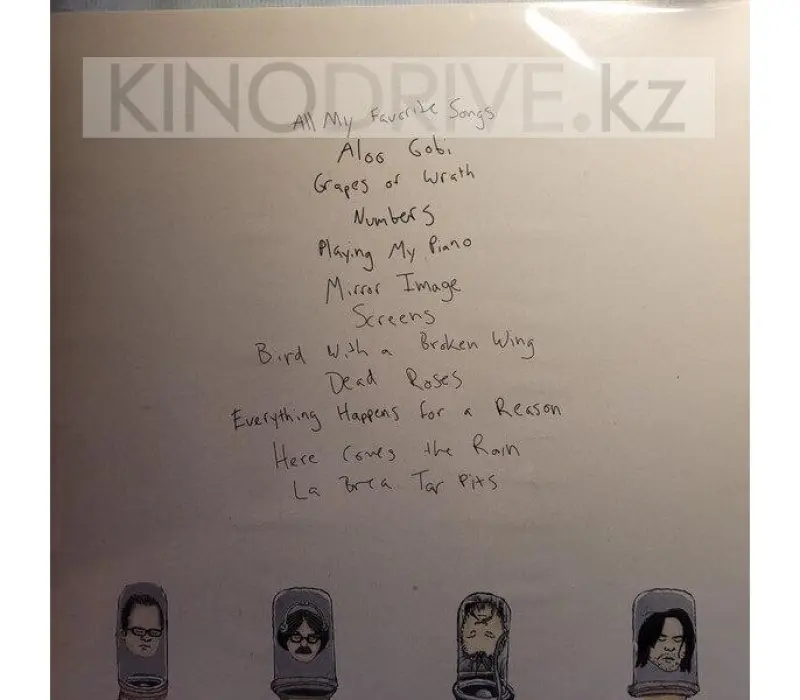 KINODRIVE.kz
All My Favorite Songs
Aloo Gobi
Grapes of Wrath
Numbers
Playing My Piano
Mirror Image
Screens
Bird With a Broken Wing
Dead Roses
Everything Happens for a Reason
Here Comes the Rain
La Brea Tar Pits